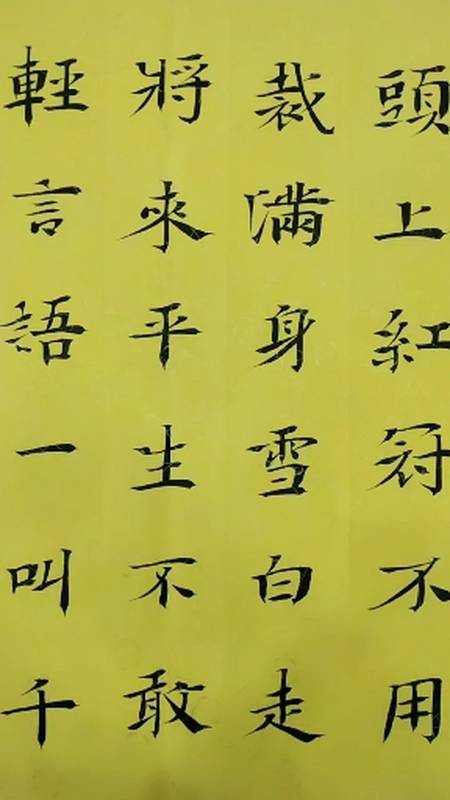 頭上紅冠不用
裁滿身雪白走
將來平生不敢
輕言語一叫千